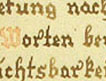 etung nach
Worten ber
ichtsbarke